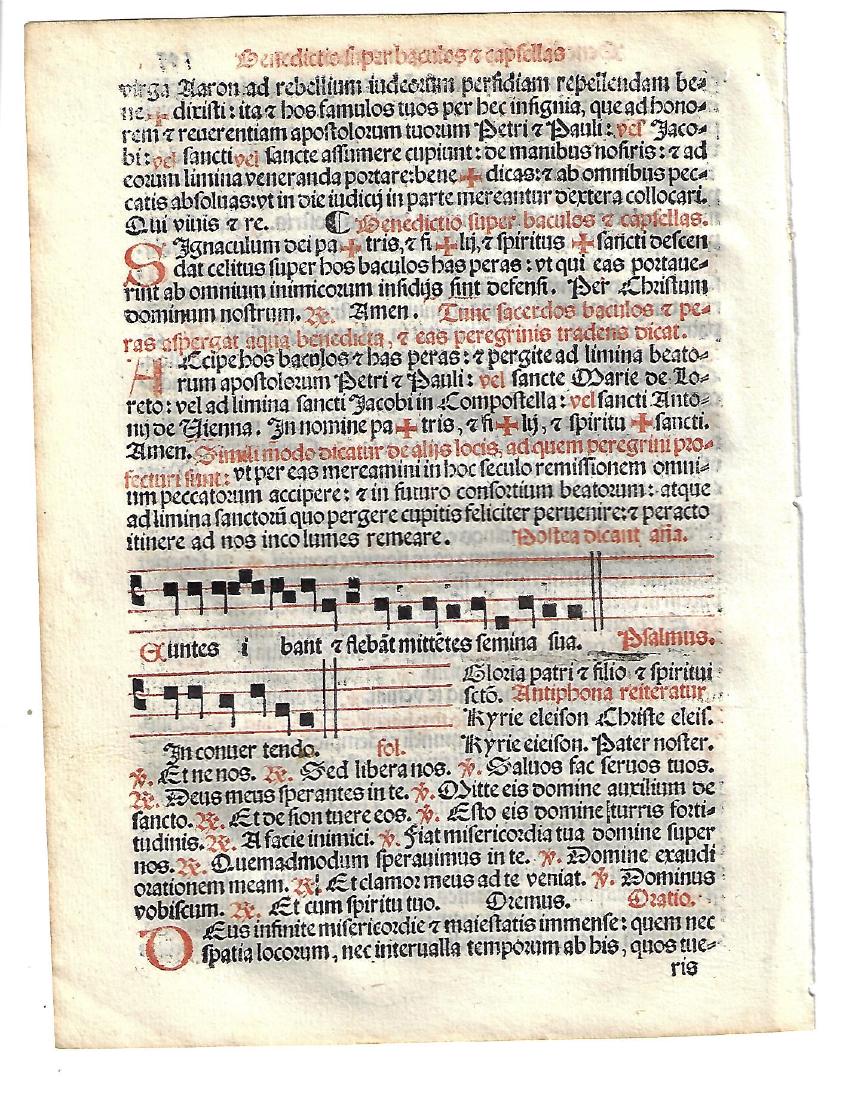 Benedictio super baculos ⁊ capsellas
virga Aaron ad rebellium iudeorum perfidiam repellendam be⸗
ne✠ dixisti: ita ⁊ hos famulos tuos per hec insignia, que ad hono⸗
rem ⁊ reuerentiam apostolorum tuorum Petri ⁊ Pauli: vel Jaco⸗
bi: vel sancti vel sancte assumere cupiunt: de manibus nostris: ⁊ ad
eorum limina veneranda portare: bene✠dicas: ⁊ ab omnibus pec⸗
catis absoluas: vt in die iudicij in parte mereantur dextera collocari.
Qui viuis ⁊ re. ⸿ Benedictio super baculos ⁊ capsellas.
SIgnaculum dei pa✠tris, ⁊ fi✠lij, ⁊ spiritus ✠ sancti descen
dat celitus super hos baculos has peras: vt qui eas portaue⸗
rint ab omnium inimicorum insidijs sint defensi. Per Christum
dominum nostrum. ℟. Amen. Tunc sacerdos baculos ⁊ pe⸗
ras aspergat aqua benedicta, ⁊ eas peregrinis tradens dicat.
ACcipe hos baculos ⁊ has peras: ⁊ pergite ad limina beato⸗
rum apostolorum Petri ⁊ Pauli: vel sancte Marie de Lo⸗
reto: vel ad limina sancti Jacobi in Compostella: vel sancti Anto⸗
nij de Uienna. In nomine pa✠tris, ⁊ fi✠lij, ⁊ spiritu✠sancti.
Amen. Simili modo dicatur de alijs locis, ad quem peregrini pro⸗
fecturi sunt: vt per eas mereamini in hoc seculo remissionem omni⸗
um peccatorum accipere: ⁊ in futuro consortium beatorum: atque
ad limina sanctorū quo pergere cupitis feliciter peruenire: ⁊ peracto
itinere ad nos incolumes remeare. Postea dicant aña.
Euntes i bant ⁊ flebāt mittētes semina sua. Psalmus.
Gloria patri ⁊ filio ⁊ spiritui
sctō. Antiphona reiteratur
Kyrie eleison Christe eleis.
In conuer tendo. sol. Kyrie eleison. Pater noster.
℣. Et ne nos. ℟. Sed libera nos. ℣. Saluos fac seruos tuos.
℟. Deus meus sperantes in te. ℣. Mitte eis domine auxilium de
sancto. ℟. Et de sion tuere eos. ℣. Esto eis domine turris forti⸗
tudinis. ℟. A facie inimici. ℣. Fiat misericordia tua domine super
nos. ℟. Quemadmodum sperauimus in te. ℣. Domine exaudi
orationem meam. ℟. Et clamor meus ad te veniat. ℣. Dominus
vobiscum. ℟. Et cum spiritu tuo. Oremus. Oratio.
DEus infinite misericordie ⁊ maiestatis immense: quem nec
spatia locorum, nec interualla temporum ab his, quos tue⸗
ris